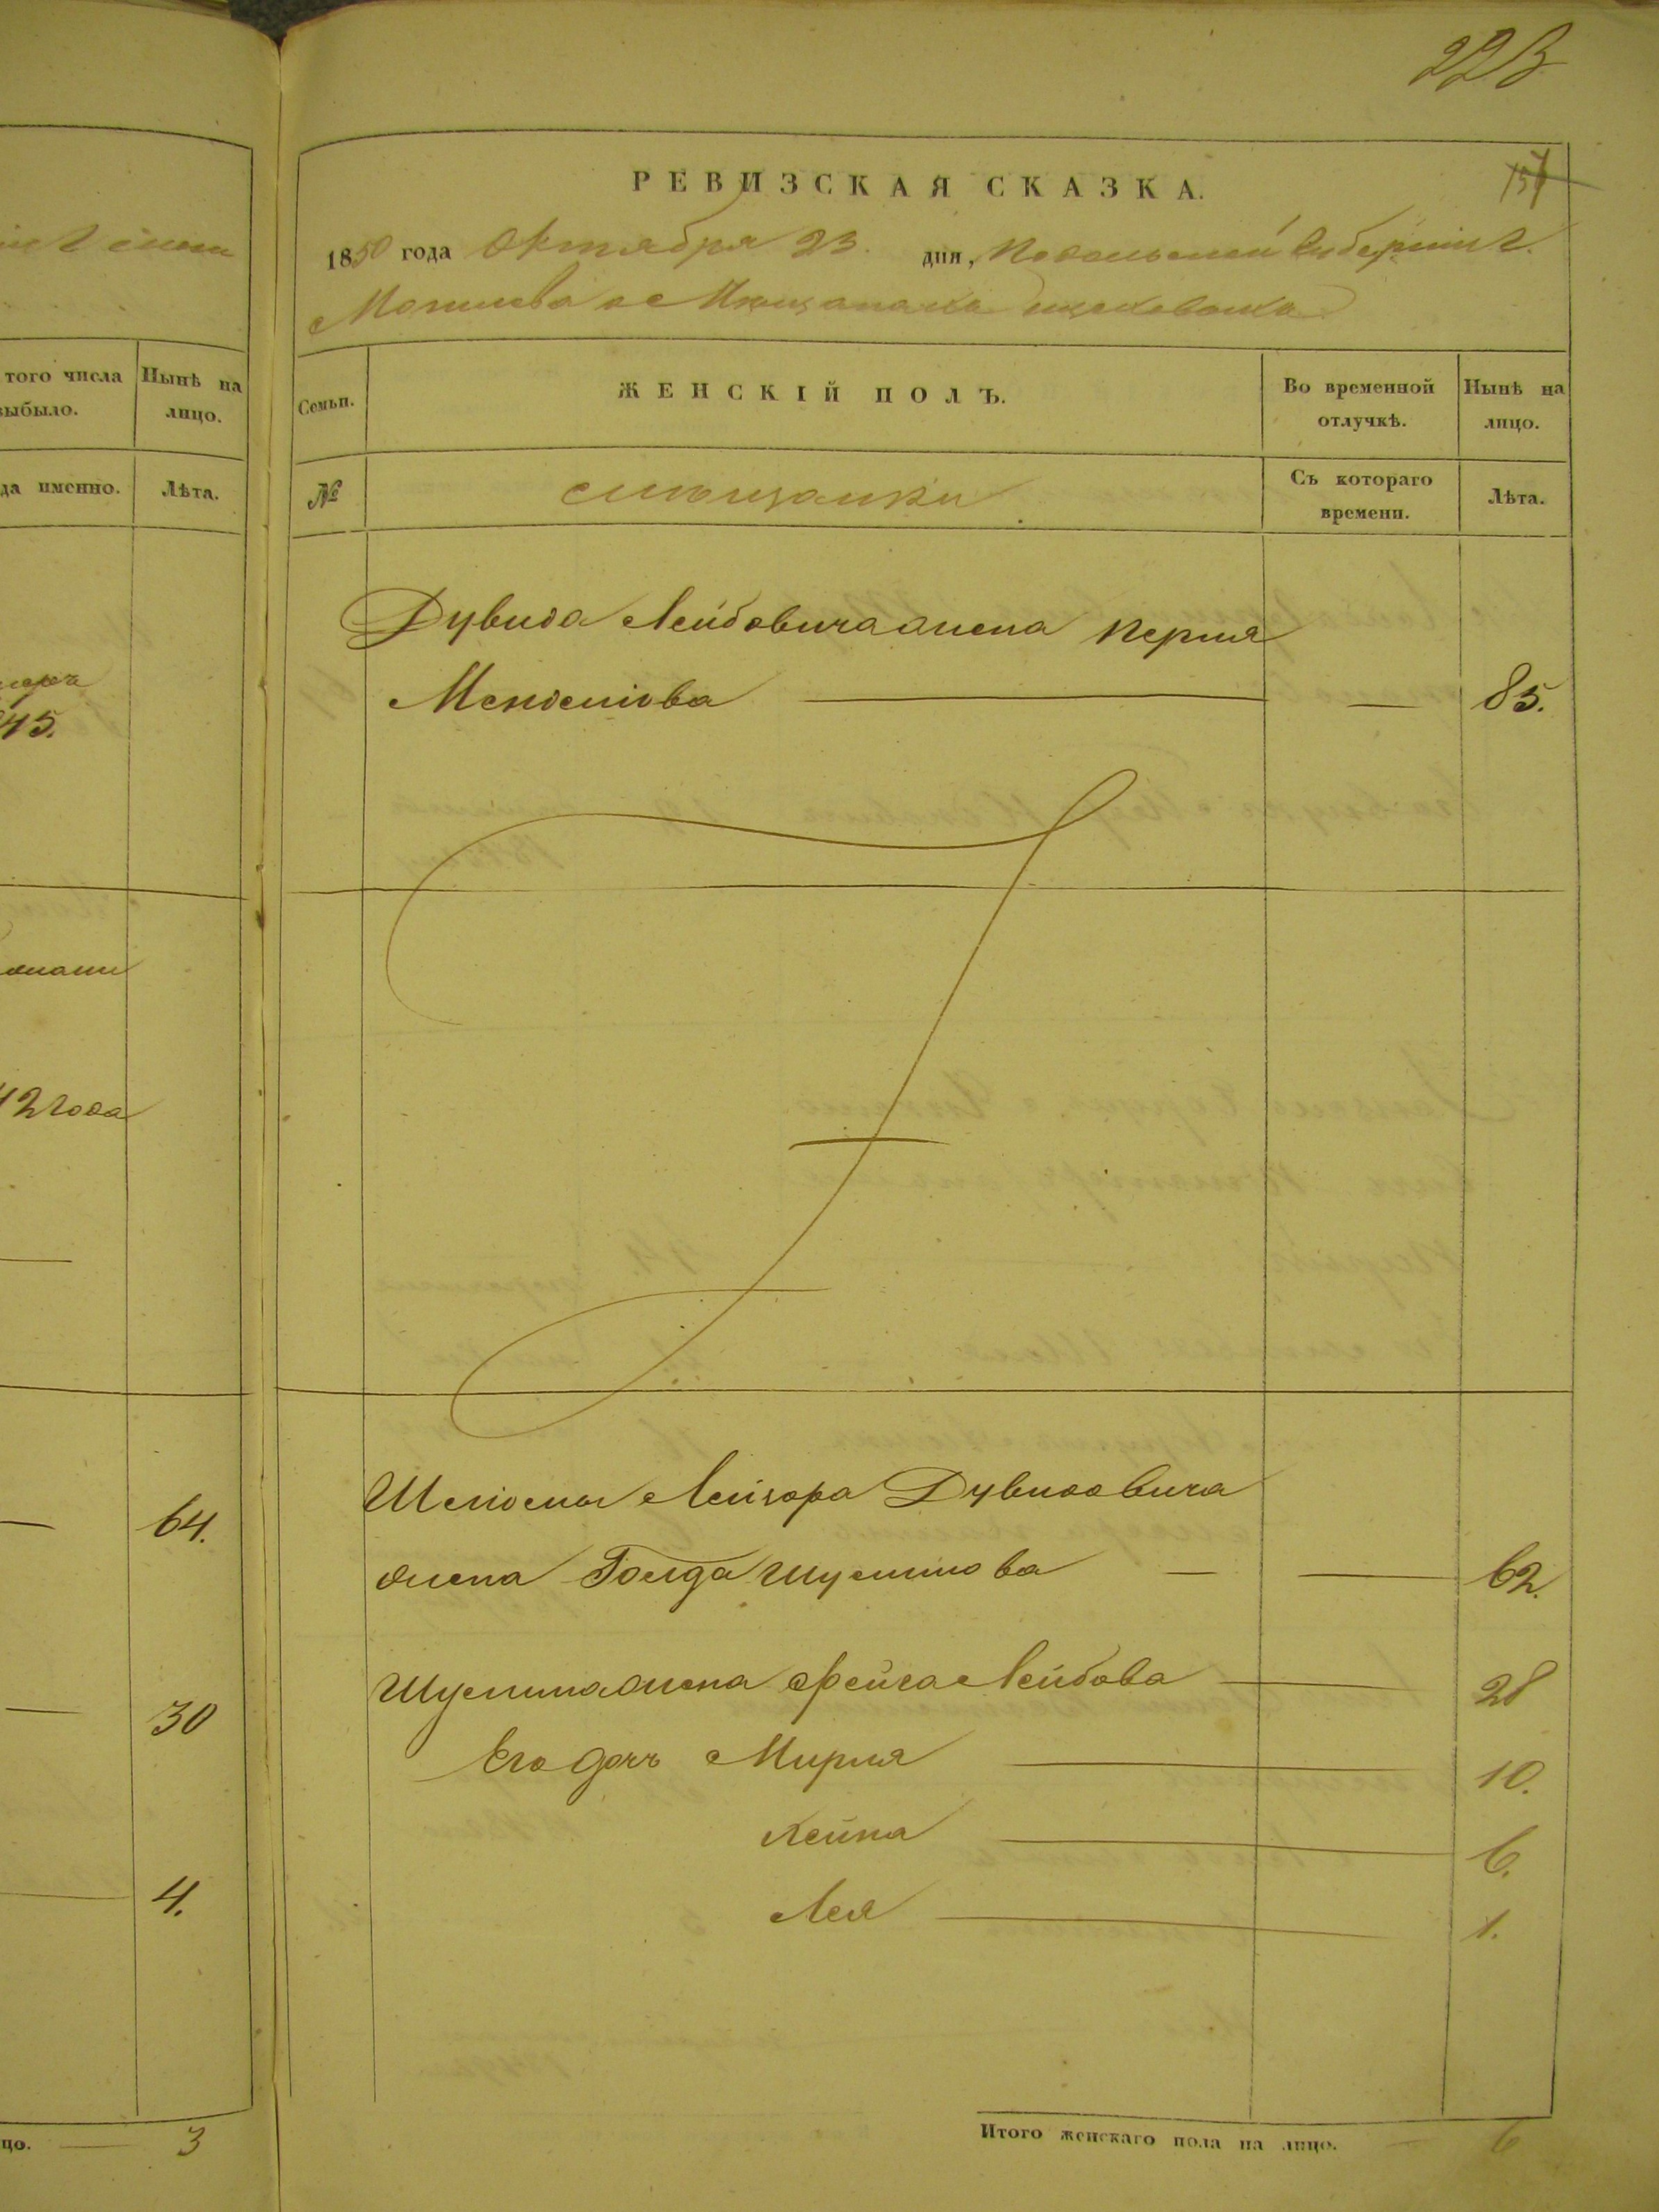 223
157
РЕВИЗСКАЯ СКАЗКА.
1850 года Октября 23. дня, Подольской Губерніи г.
Могилева о Мещанахъ
того числа
выбыло.
Нынѣ на
лицо.
Семьи.
ЖЕНСКІЙ ПОЛЪ.
Во временной
отлучкѣ.
Нынѣ на
лицо.
да именно.
Лѣта.
№
Мѣщанки
Съ котораго
времени.
Лѣта.
Дувида Лейбовича жена Перля
85.
45.
42 года
Шліомы Лейзора Дувидовича
64.
жена Голда Шулимова — — 62.
Шулима жена Фейга Лейбова — 28
30
Его дочь Мирля — 10.
Хейка — 6.
4.
Лея — 1.
цо. — 3
Итого женскаго пола на лицо. — 6